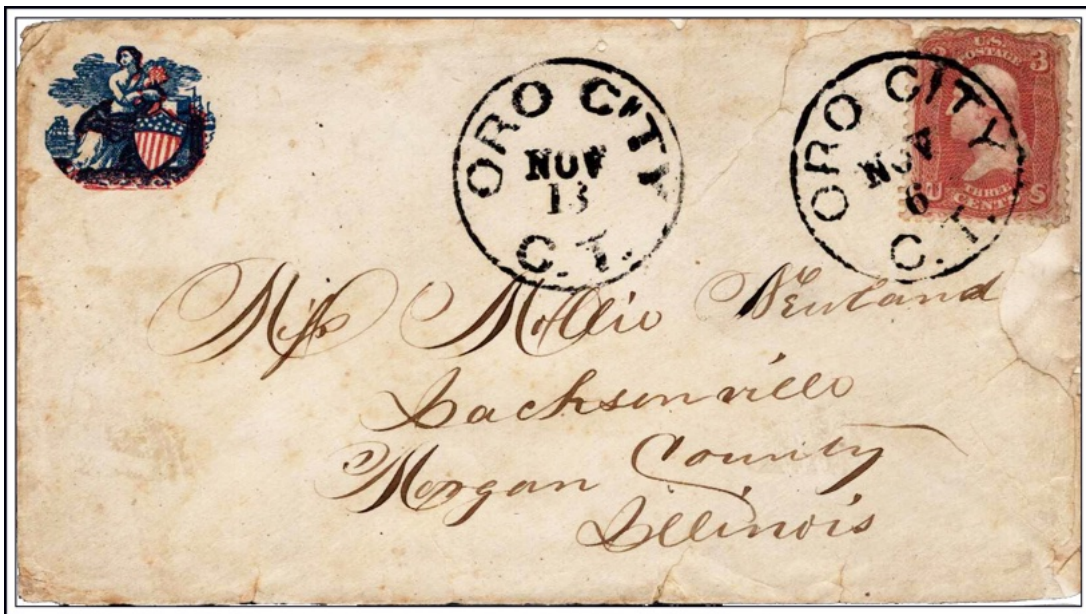 ORO CITY
NOV
13
C.T.
ORO CITY
NOV
6
C.T.
U.S.
POSTAGE
3 3
THREE
CENTS
U S
Miss Mollie Newland
Jacksonville
Morgan County
Illinois